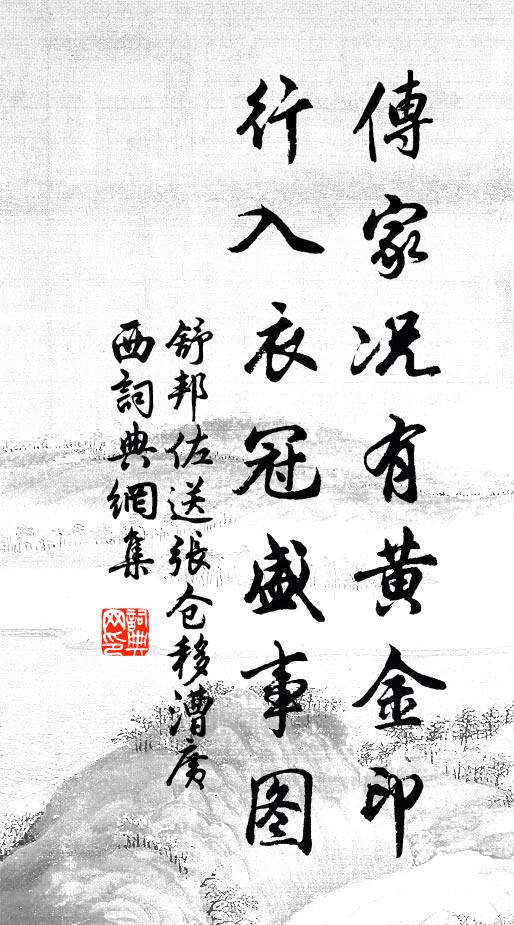 傳家况有黄金印
行入衣冠盛事图
舒邦佐送張仓移漕廣
西詞典網集
詞典
网印